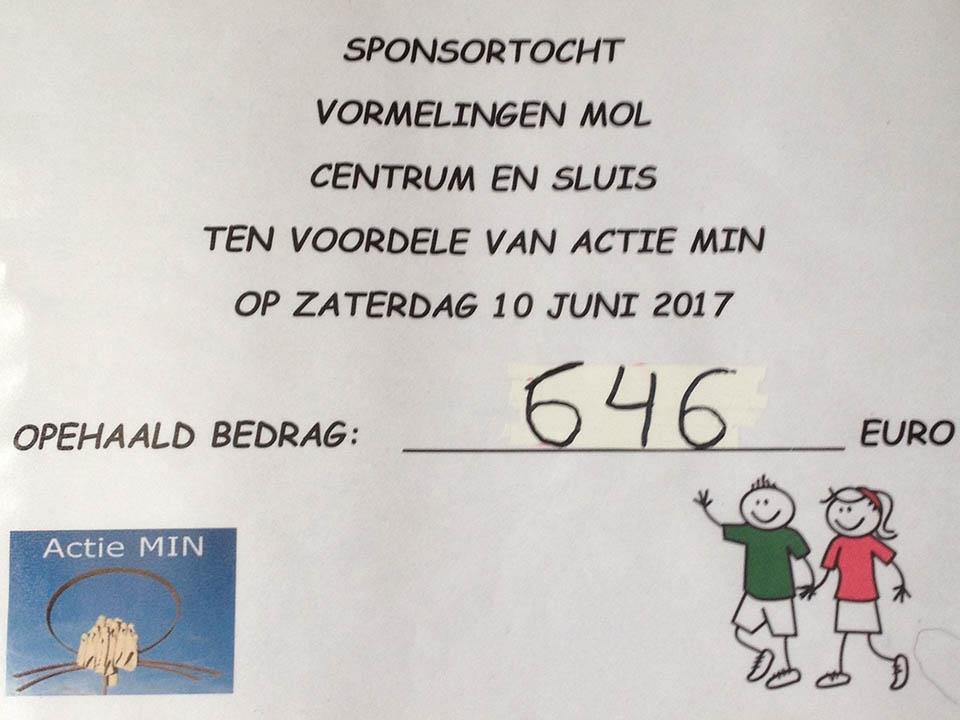 SPONSORTOCHT
VORMELINGEN MOL
CENTRUM EN SLUIS
TEN VOORDELE VAN ACTIE MIN
OP ZATERDAG 10 JUNI 2017
OPEHAALD BEDRAG: 646 EURO
Actie MIN